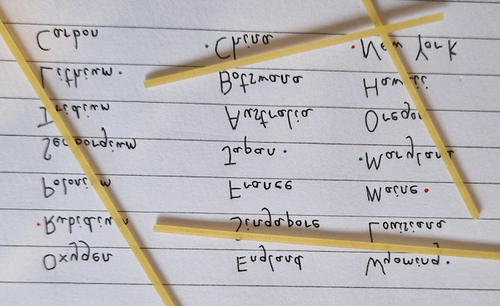 Oxygen
Rubidium
Polonium
Seaborgium
Iridium
Lithium
Carbon
England
Singapore
France
Japan
Australia
Botswana
China
Wyoming
Louisiana
Maine
Maryland
Oregon
Hawaii
New York